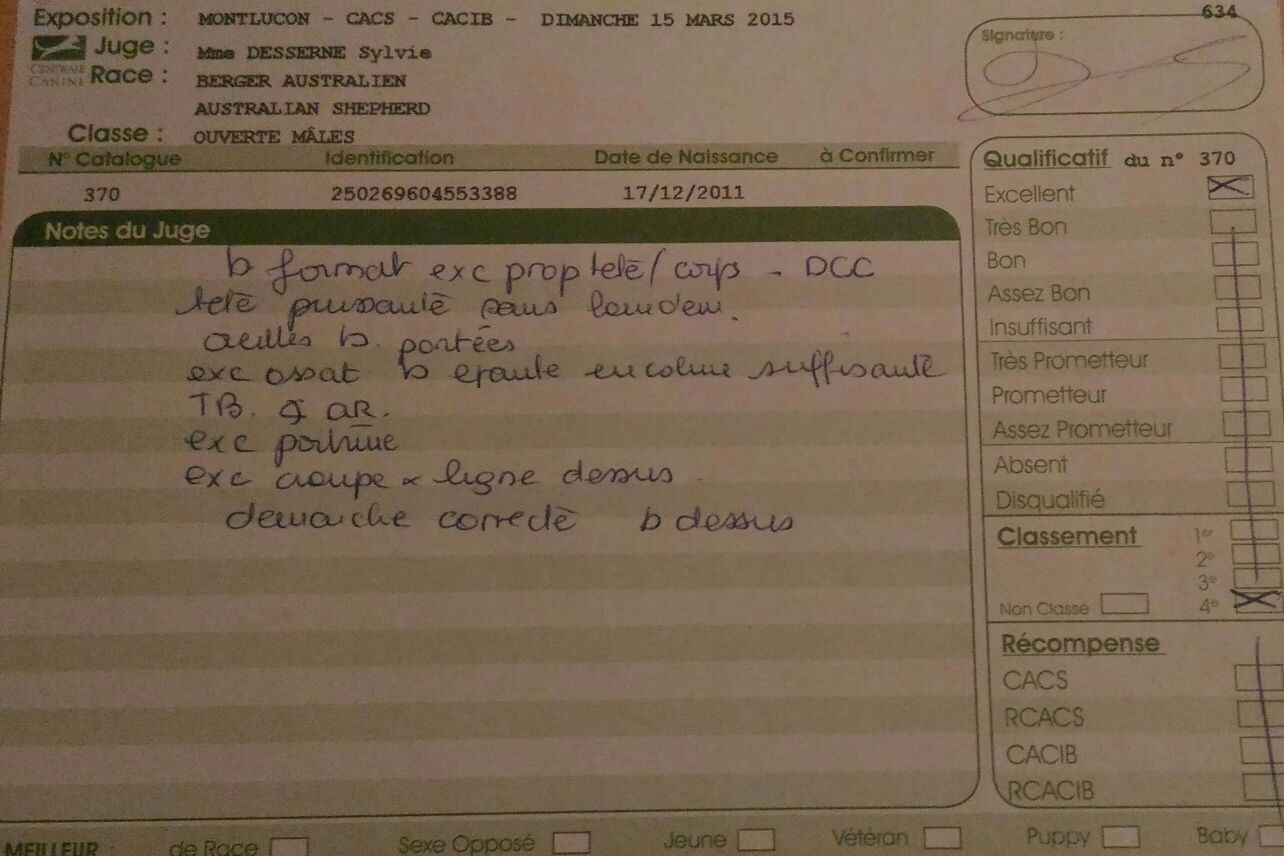 634
Exposition : MONTLUCON - CACS - CACIB - DIMANCHE 15 MARS 2015
Juge : Mme DESSERNE Sylvie
CENTRALE CANINE
Race : BERGER AUSTRALIEN
AUSTRALIAN SHEPHERD
Classe : OUVERTE MÂLES
Signature :
N° Catalogue Identification Date de Naissance à Confirmer
370 250269604553388 17/12/2011
Notes du Juge
b format exc prop tete / corps - DCC
tete puissante sans
oeilles b. portées
exc ossat b epaule encolure suffisante
TB. AR.
exc poitrine
exc croupe ligne dessus
demarche correcte b dessus
Qualificatif du n° 370
Excellent
Très Bon
Bon
Assez Bon
Insuffisant
Très Prometteur
Prometteur
Assez Prometteur
Absent
Disqualifié
Classement 1er
2e
3e
Non Classé 4e
Récompense
CACS
RCACS
CACIB
RCACIB
MEILLEUR : de Race Sexe Opposé Jeune Vétéran Puppy Baby